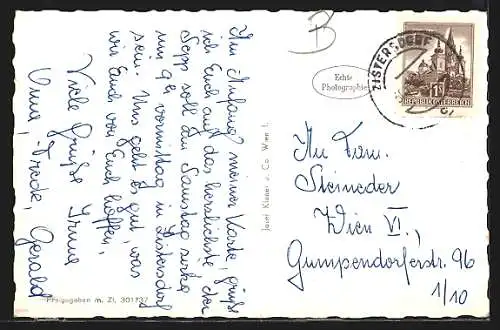 Am Anfang meiner Karte, grüße
ich Euch auf das herzlichste, der
Sepp soll den Samstag zirka
um 9h vormittag in Zistersdorf
sein. Uns geht es gut, was
wir Euch von Euch hoffen.
Viele Grüße Irma
Oma, Friede, Gerald
Freigegeben m. Zl. 301
Josef Kleiner u. Co. Wien I.
B
Echte
Photographie
ZISTERSDORF
1S
REPUBLIK ÖSTERREICH
An Fam.
Steineder
Wien VI.,
Gumpendorferstr. 96
1/10